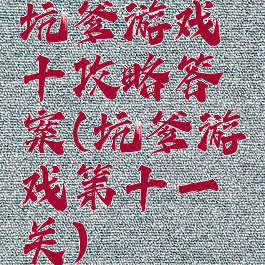 坑爹游戏
十攻略答
案(坑爹游
戏第十一
关)